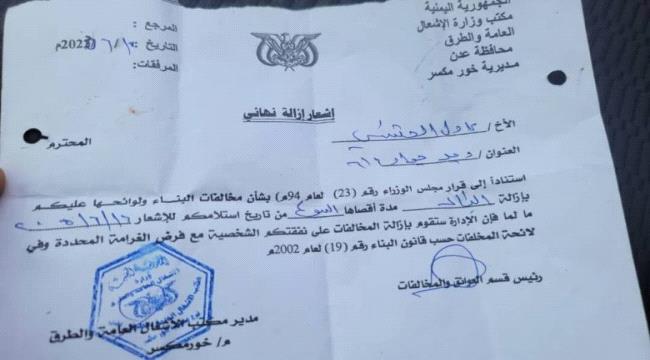 الجمهورية اليمنية
مكتب وزارة الإشغال
العامة والطرق
محافظة عدن
مديرية خور مكسر
المرجع :
التاريخ :
المرفقات:
إشعار إزالة نهائي
الأخ / عادل
المحترم
العنوان /
استناداً إلى قرار مجلس الوزراء رقم (23) لعام 94م بشأن مخالفات البناء ولوائحها عليكم
بإزالة مدة أقصاها اسبوع من تاريخ استلامكم للإشعار
ما لما فإن الإدارة ستقوم بإزالة المخالفات على نفقتكم الشخصية مع فرض الغرامة المحددة وفي
لائحة المخلفات حسب قانون البناء رقم (19) لعام 2002م
رئيس قسم العوائق والمخالفات
مدير مكتب الأشغال العامة والطرق
م/ خورمكسر